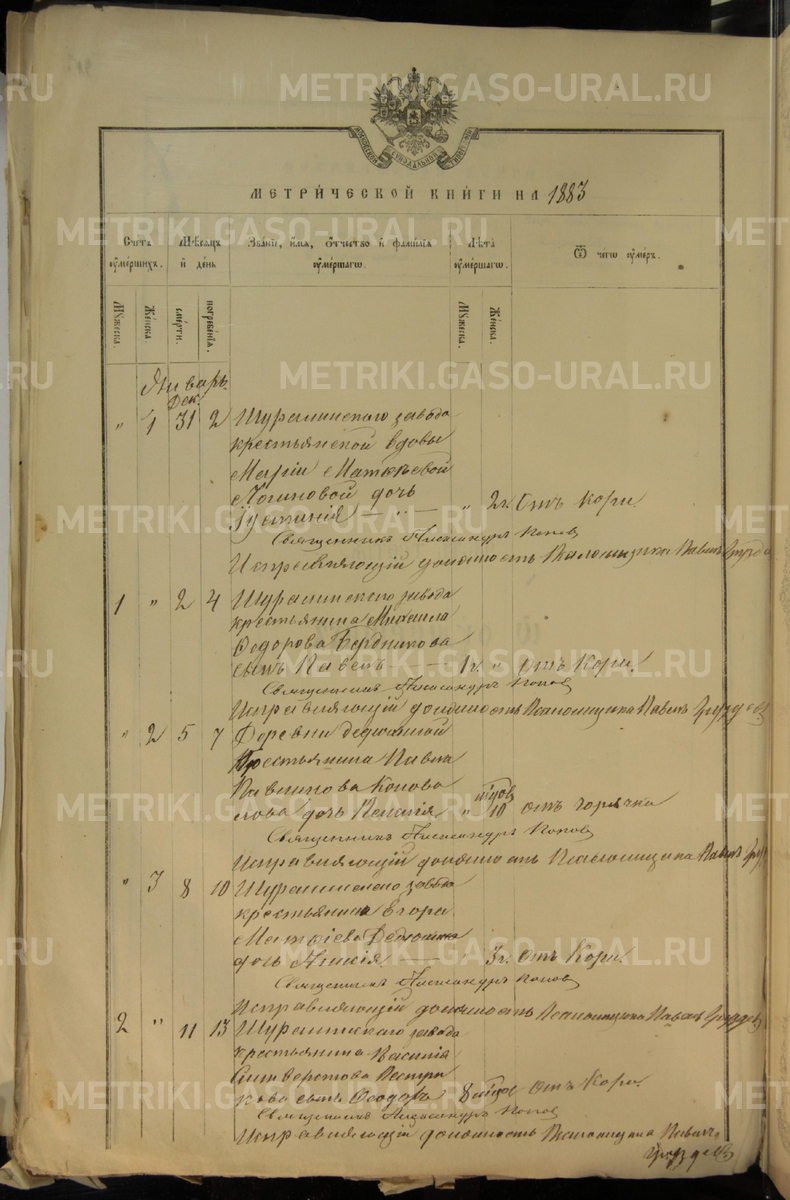 МЕТРИЧЕСКОЙ КНИГИ НА 1883
Счетъ умершихъ.
Мѣсяцъ и день
Званіе, имя, отчество и фамилія умершагѡ.
Лѣта умершагѡ.
Ѿ чегѡ умеръ.
Мужеска.
Женска.
смерти.
погребенія.
Мужеска.
Женска.
Январь.
Дек.
" 1 31 2 Шуралинскаго завода
крестьянской вдовы
Маріи Матѳѣевой
Логиновой дочь
Іустинія " 2 г. Отъ Кори.
Священникъ Александръ Поповъ
Исправляющій должность Псаломщика Павелъ
1 " 2 4 Шуралинскаго завода
крестьянина Михаила
Ѳедорова Бердникова
сынъ Павелъ 1 г. " Отъ Кори.
Священникъ Александръ Поповъ
Исправляющій должность Псаломщика Павелъ
" 2 5 7 Деревни
крестьянина Павла
дочь " 10 отъ горячки
Священникъ Александръ Поповъ
Исправляющій должность Псаломщика Павелъ
" 3 8 10 Шуралинскаго завода
крестьянина Егора
Матѳіева
дочь 3 г. отъ Кори.
Священникъ Александръ Поповъ
Исправляющій должность Псаломщика Павелъ
2 " 11 13 Шуралинскаго завода
крестьянина Василія
Сильверстова Пестри
кова сынъ Ѳеодоръ 8 отъ Кори.
Священникъ Александръ Поповъ
Исправляющій должность Псаломщика Павелъ
METRIKI.GASO-URAL.RU